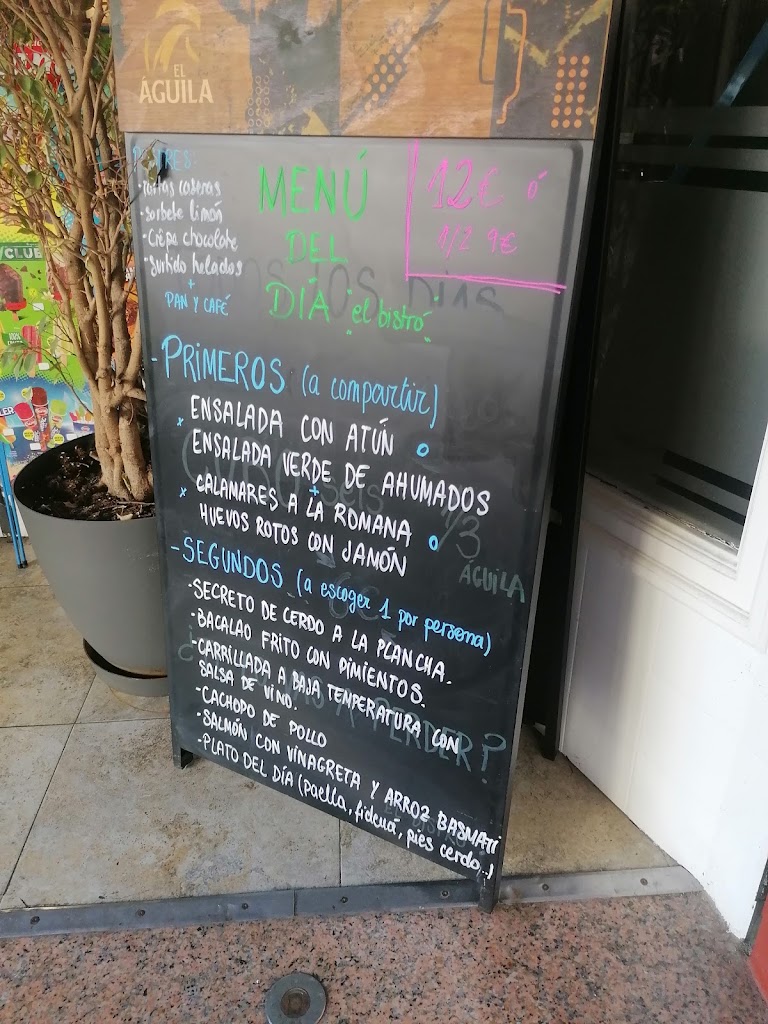 EL
ÁGUILA
tartas caseras
-sorbete limón
-Crêpe chocolate
-surtido helados
+
PAN Y CAFÉ
MENÚ
DEL
DÍA "el bistró"
12€ ó
1/2 9€
-PRIMEROS (a compartir)
x ENSALADA CON ATÚN o
ENSALADA VERDE DE AHUMADOS
+
x CALAMARES A LA ROMANA o
HUEVOS ROTOS CON JAMÓN
1/3
ÁGUILA
-SEGUNDOS (a escoger 1 por persona)
-SECRETO DE CERDO A LA PLANCHA.
-BACALAO FRITO CON PIMIENTOS.
-CARRILLADA A BAJA TEMPERATURA CON
SALSA DE VINO.
-CACHOPO DE POLLO
-SALMÓN CON VINAGRETA Y ARROZ BASMATI
-PLATO DEL DÍA (paella, fideuá, pies cerdo...)
PERDER?
CLUB